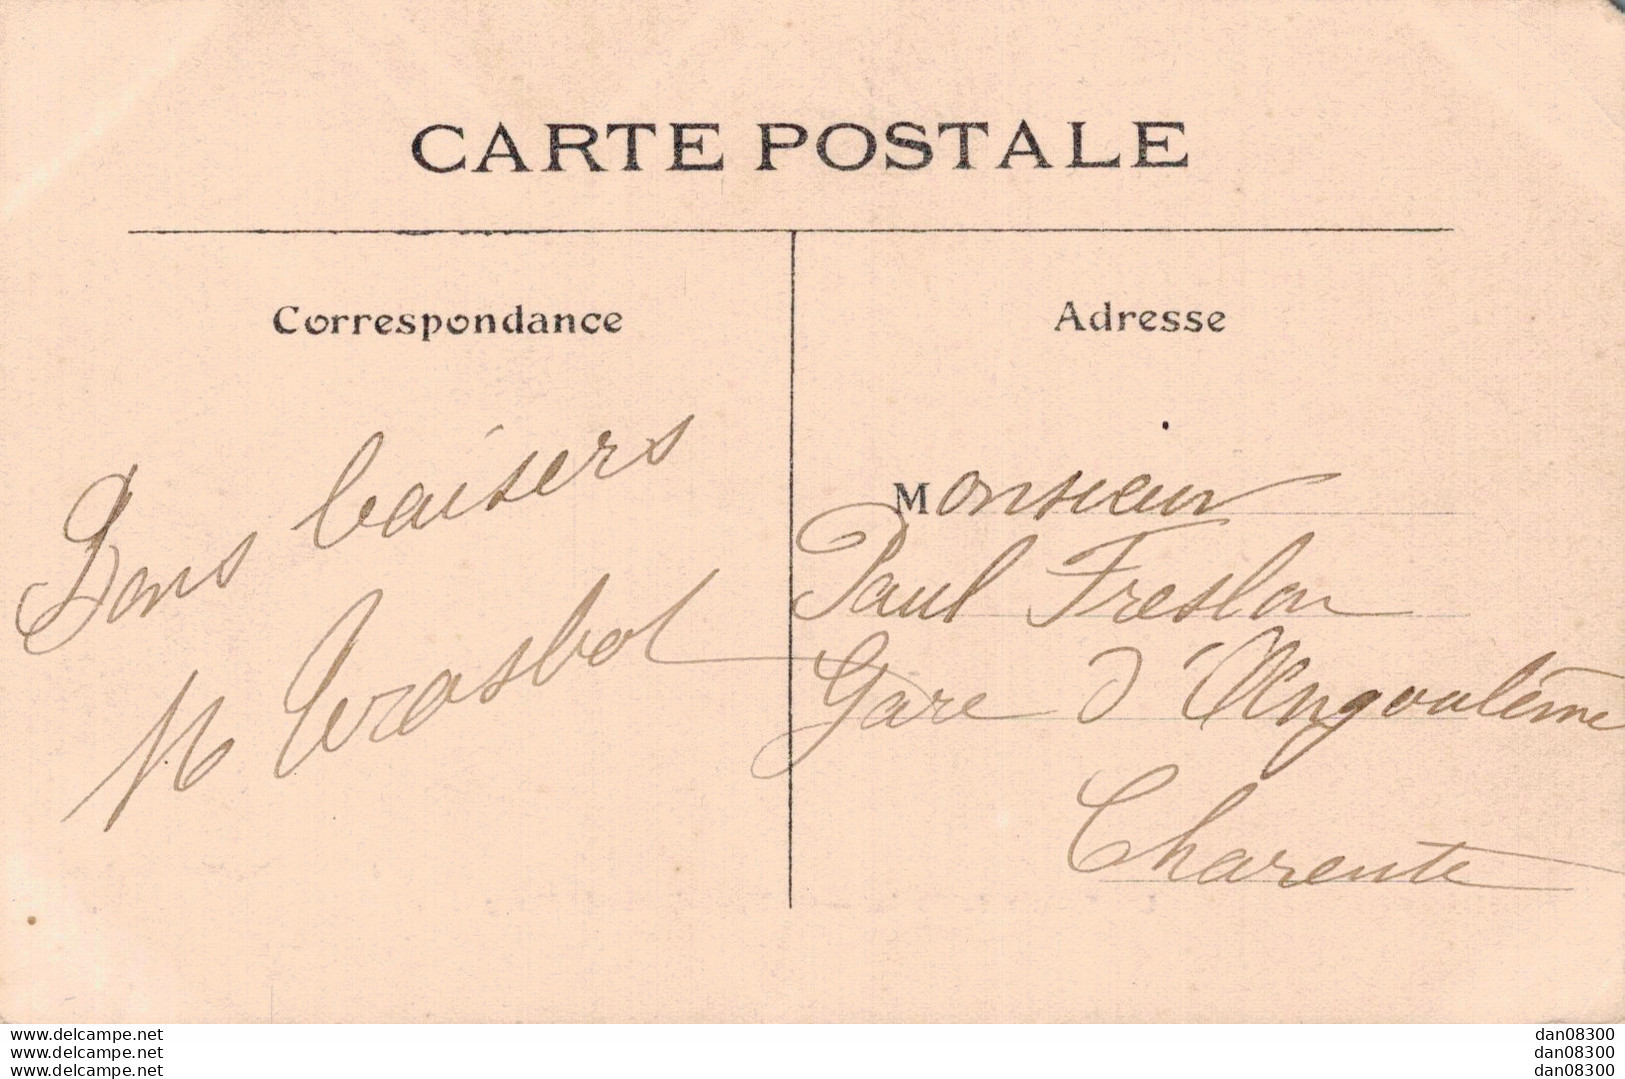 CARTE POSTALE
Correspondance
Bons baisers
M
Adresse
Monsieur
Paul Freslon
Gare d'Angoulême
Charente
www.delcampe.net
www.delcampe.net
www.delcampe.net
dan08300
dan08300
dan08300